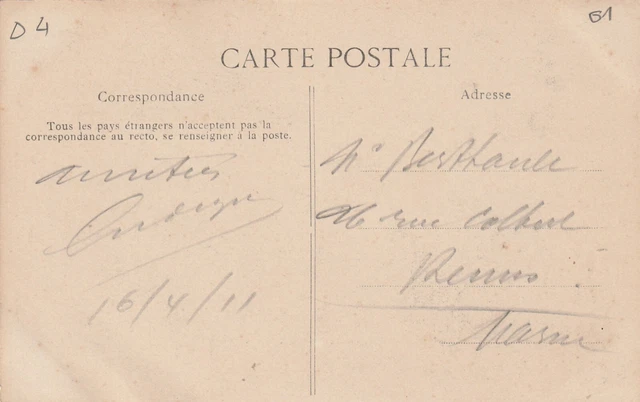 D 4
51
CARTE POSTALE
Correspondance
Tous les pays étrangers n'acceptent pas la
correspondance au recto, se renseigner à la poste.
amitiés
16/4/11
Adresse
Mr Berthault
26 rue Colbert
Reims
Marne